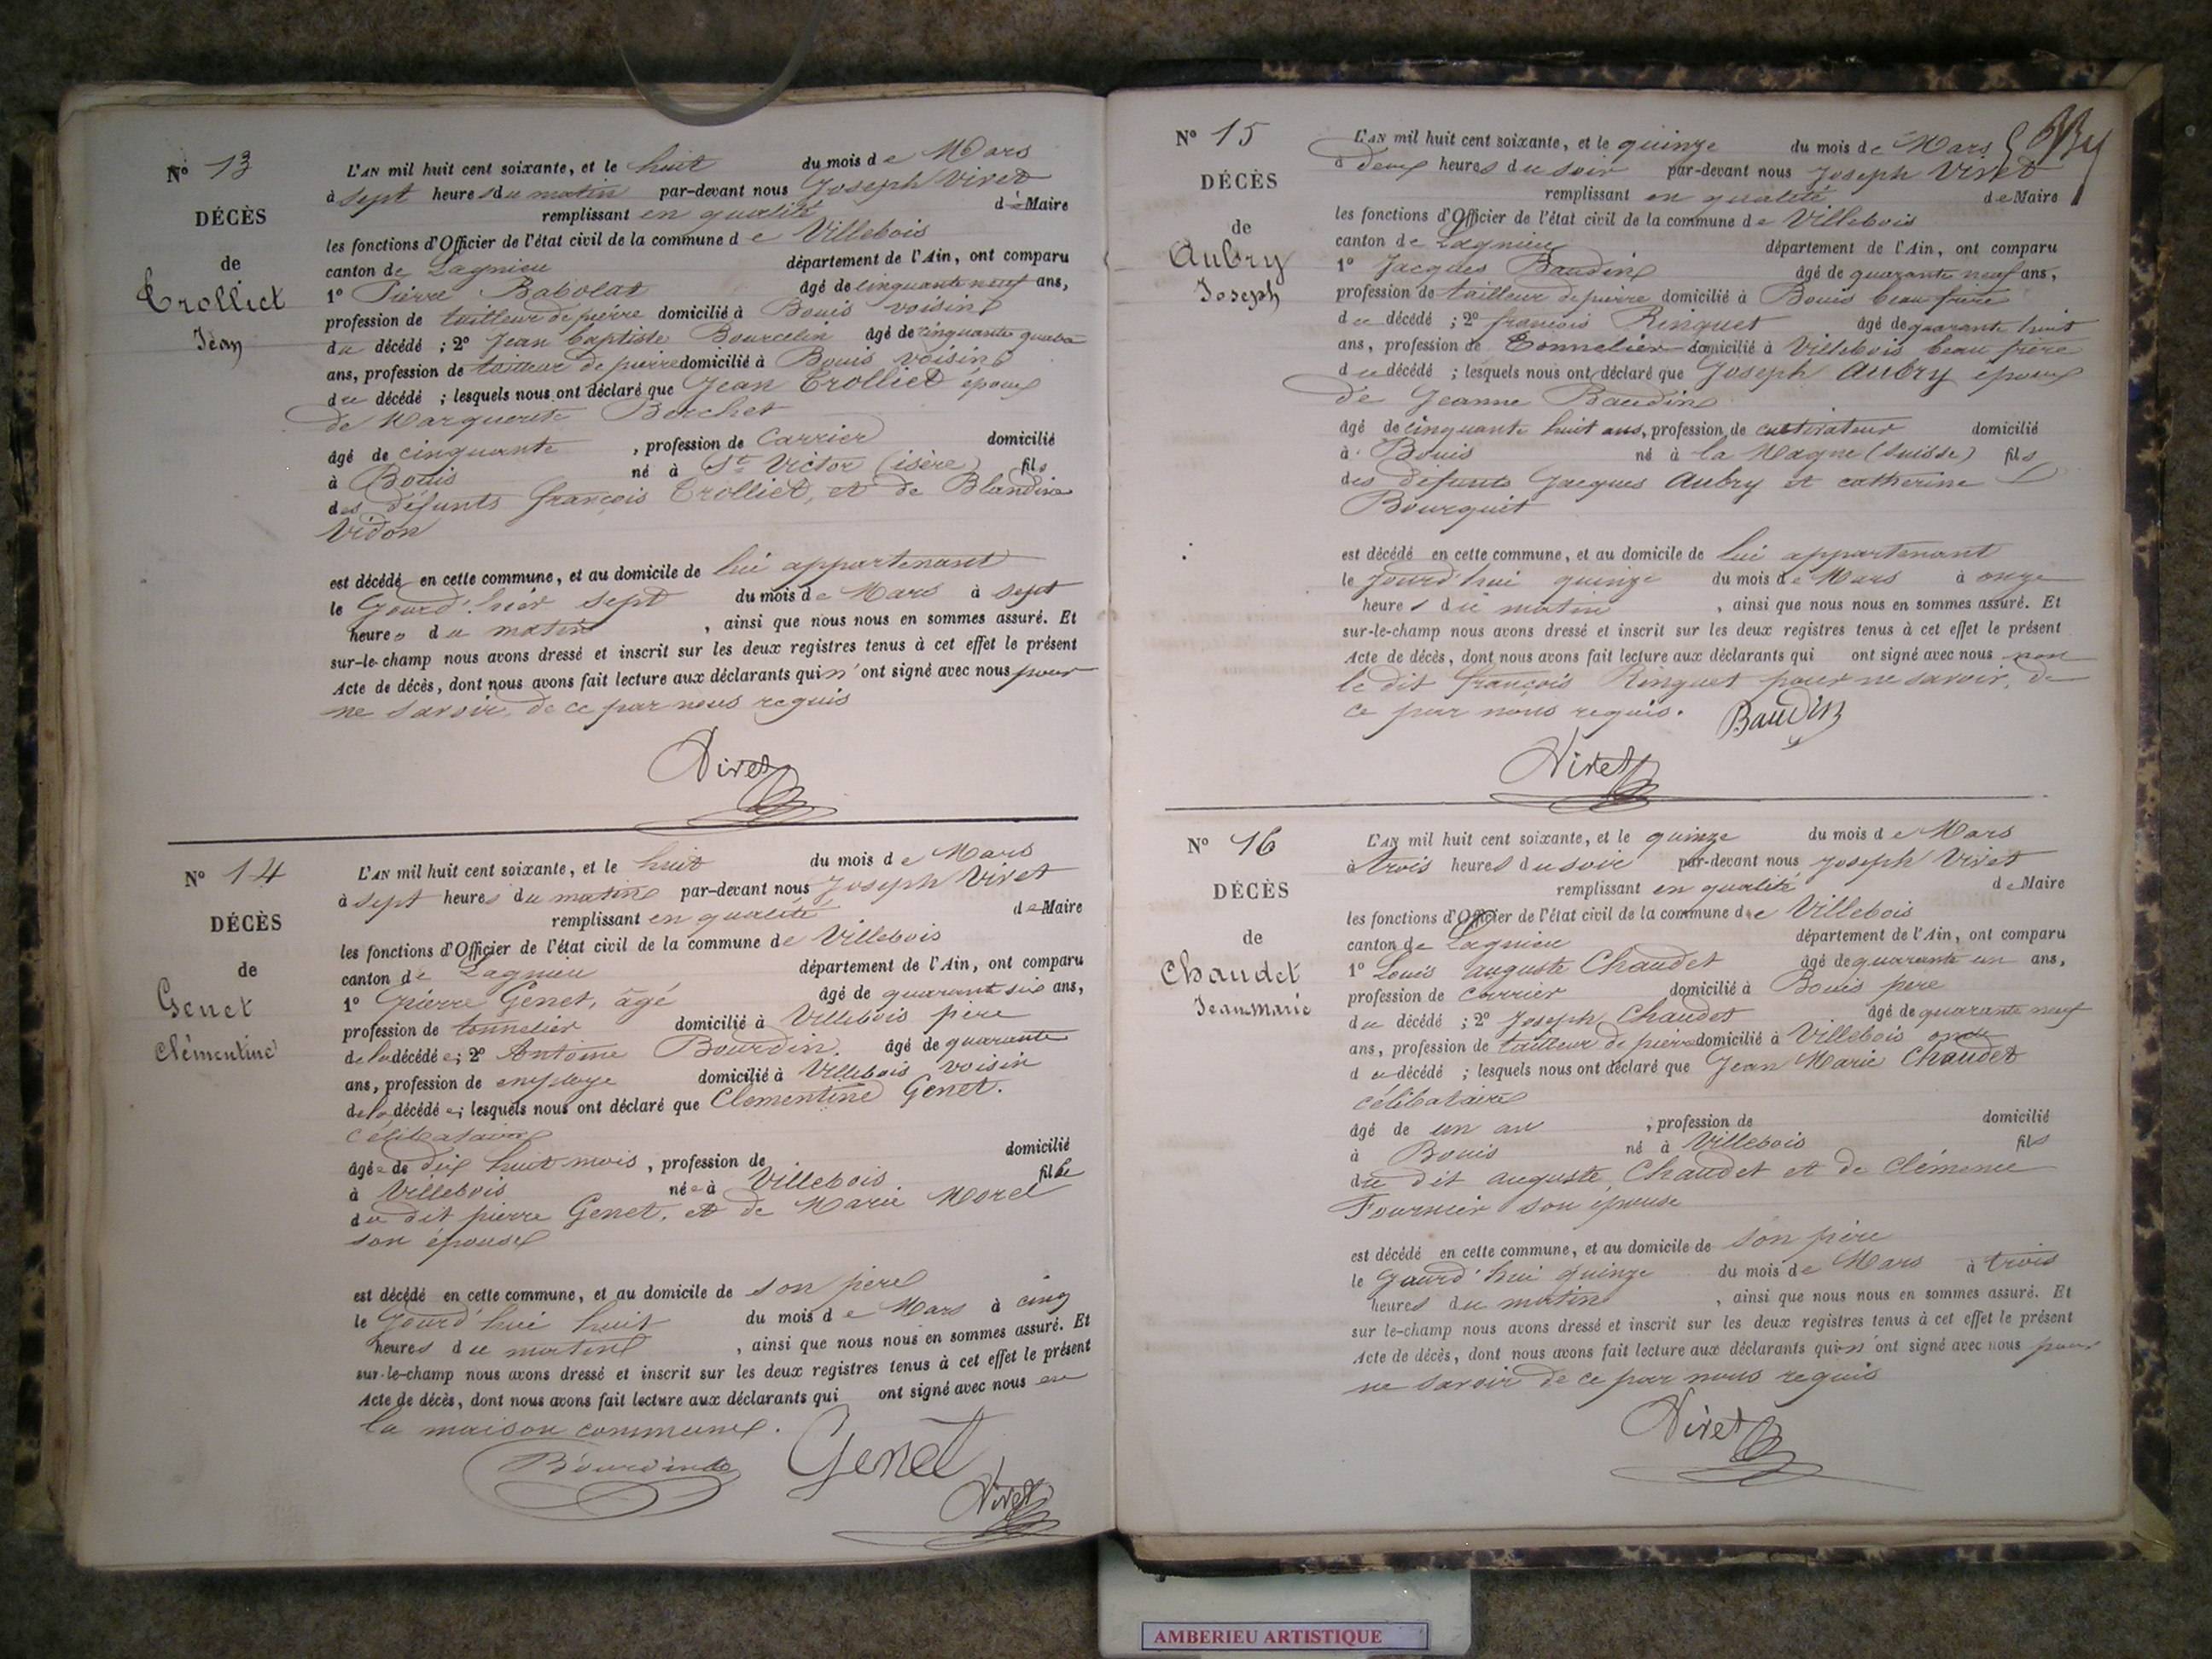 Nº 13
DÉCÈS
de
Trolliet
Jean
L'AN mil huit cent soixante, et le huit du mois de Mars
à sept heures du matin par-devant nous Joseph Vivet
remplissant en qualité de Maire
les fonctions d'Officier de l'état civil de la commune de Villebois
canton de Lagnieu département de l'Ain, ont comparu
1º Pierre Babolat âgé de cinquante neuf ans,
profession de tailleur de pierre domicilié à Bouis voisin
du décédé ; 2º Jean baptiste Bourcelin âgé de cinquante quatre
ans, profession de tailleur de pierre domicilié à Bouis voisin
du décédé ; lesquels nous ont déclaré que Jean Trolliet époux
de Marguerite Berchet
âgé de cinquante , profession de Carrier domicilié
à Bouis né à St Victor (isère) fils
des défunts françois Trolliet, et de Blandine
Vidon
est décédé en cette commune, et au domicile de lui appartenant
le Jourd'hier sept du mois de Mars à sept
heures du matin , ainsi que nous nous en sommes assuré. Et
sur-le-champ nous avons dressé et inscrit sur les deux registres tenus à cet effet le présent
Acte de décès, dont nous avons fait lecture aux déclarants qui n'ont signé avec nous pour
ne savoir, de ce par nous requis
Vivet
Nº 14
DÉCÈS
de
Genet
Clémentine
L'AN mil huit cent soixante, et le huit du mois de Mars
à sept heures du matin par-devant nous Joseph Vivet
remplissant en qualité de Maire
les fonctions d'Officier de l'état civil de la commune de Villebois
canton de Lagnieu département de l'Ain, ont comparu
1º pierre Genet, âgé âgé de quarante six ans,
profession de tonnelier domicilié à Villebois père
de la décédée; 2º Antoine Bourdin. âgé de quarante
ans, profession de employe domicilié à Villebois voisin
de la décédée; lesquels nous ont déclaré que Clementine Genet.
célibataire
âgée de dix huit mois, profession de domicilié
à Villebois née à Villebois fille
du dit pierre Genet, et de Marie Morel
son épouse
est décédé en cette commune, et au domicile de son père
le Jourd'hui huit du mois de Mars à cinq
heures du matin , ainsi que nous nous en sommes assuré. Et
sur-le-champ nous avons dressé et inscrit sur les deux registres tenus à cet effet le présent
Acte de décès, dont nous avons fait lecture aux déclarants qui ont signé avec nous en
la maison commune.
Bourdin Genet
Vivet
Nº 15
DÉCÈS
de
Aubry
Joseph
L'AN mil huit cent soixante, et le quinze du mois de Mars
à deux heures du soir par-devant nous Joseph Vivet
remplissant en qualité de Maire
les fonctions d'Officier de l'état civil de la commune de Villebois
canton de Lagnieu département de l'Ain, ont comparu
1º Jacques Baudin âgé de quarante neuf ans,
profession de tailleur de pierre domicilié à Bouis beau frère
du décédé ; 2º françois Ringuet âgé de quarante huit
ans, profession de Tonnelier domicilié à Villebois beau frère
du décédé ; lesquels nous ont déclaré que Joseph Aubry époux
de Jeanne Baudin
âgé de cinquante huit ans, profession de cultivateur domicilié
à Bouis né à la Magne (suisse) fils
des défunts Jacques Aubry et catherine
Bourquit
est décédé en cette commune, et au domicile de lui appartenant
le Jourd'hui quinze du mois de Mars à onze
heures du matin , ainsi que nous nous en sommes assuré. Et
sur-le-champ nous avons dressé et inscrit sur les deux registres tenus à cet effet le présent
Acte de décès, dont nous avons fait lecture aux déclarants qui ont signé avec nous non
le dit françois Ringuet pour ne savoir, de
ce par nous requis. Baudin
Vivet
Nº 16
DÉCÈS
de
Chaudet
Jean Marie
L'AN mil huit cent soixante, et le quinze du mois de Mars
à trois heures du soir par-devant nous Joseph Vivet
remplissant en qualité de Maire
les fonctions d'Officier de l'état civil de la commune de Villebois
canton de Lagnieu département de l'Ain, ont comparu
1º Louis auguste Chaudet âgé de quarante un ans,
profession de carrier domicilié à Bouis père
du décédé ; 2º Joseph Chaudet âgé de quarante neuf
ans, profession de tailleur de pierre domicilié à Villebois oncle
du décédé ; lesquels nous ont déclaré que Jean Marie Chaudet
célibataire
âgé de un an , profession de domicilié
à Bouis né à Villebois fils
du dit auguste Chaudet et de Clémence
Fournier son épouse
est décédé en cette commune, et au domicile de son père
le Jourd'hui quinze du mois de Mars à trois
heures du matin , ainsi que nous nous en sommes assuré. Et
sur le-champ nous avons dressé et inscrit sur les deux registres tenus à cet effet le présent
Acte de décès, dont nous avons fait lecture aux déclarants qui n'ont signé avec nous pour
ne savoir de ce par nous requis
Vivet
AMBERIEU ARTISTIQUE